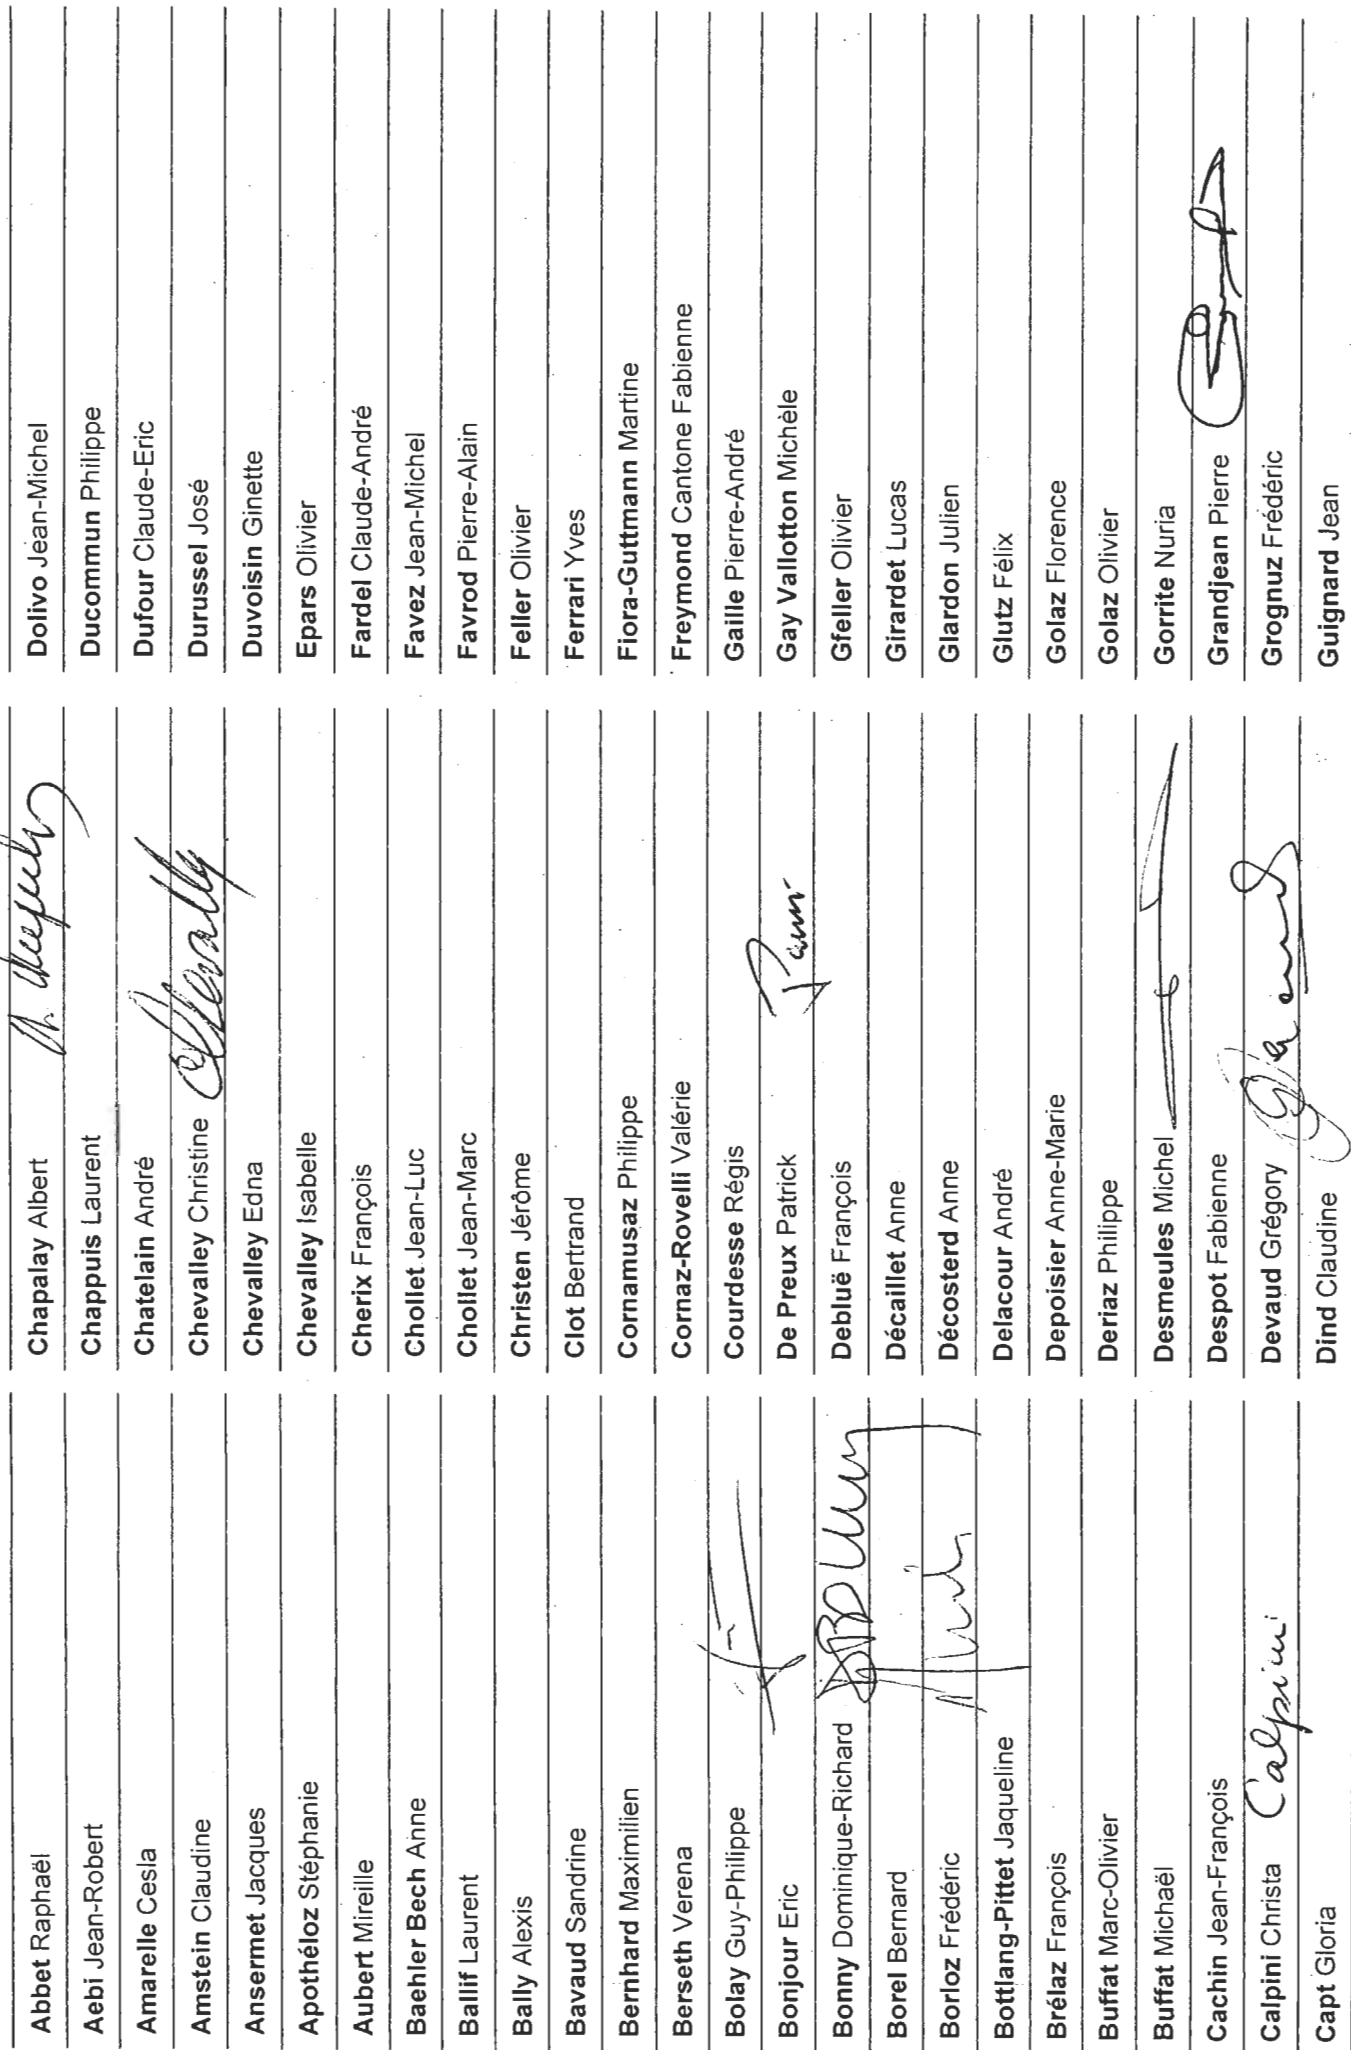 Abbet Raphaël
Aebi Jean-Robert
Amarelle Cesla
Amstein Claudine
Ansermet Jacques
Apothéloz Stéphanie
Aubert Mireille
Baehler Bech Anne
Ballif Laurent
Bally Alexis
Bavaud Sandrine
Bernhard Maximilien
Berseth Verena
Bolay Guy-Philippe
Bonjour Eric
Bonny Dominique-Richard
Borel Bernard
Borloz Frédéric
Bottlang-Pittet Jaqueline
Brélaz François
Buffat Marc-Olivier
Buffat Michaël
Cachin Jean-François
Calpini Christa Calpini
Capt Gloria
Chapalay Albert
Chappuis Laurent
Chatelain André
Chevalley Christine
Chevalley Edna
Chevalley Isabelle
Cherix François
Chollet Jean-Luc
Chollet Jean-Marc
Christen Jérôme
Clot Bertrand
Cornamusaz Philippe
Cornaz-Rovelli Valérie
Courdesse Régis
De Preux Patrick
Debluë François
Décaillet Anne
Décosterd Anne
Delacour André
Depoisier Anne-Marie
Deriaz Philippe
Desmeules Michel
Despot Fabienne
Devaud Grégory
Dind Claudine
Dolivo Jean-Michel
Ducommun Philippe
Dufour Claude-Eric
Durussel José
Duvoisin Ginette
Epars Olivier
Fardel Claude-André
Favez Jean-Michel
Favrod Pierre-Alain
Feller Olivier
Ferrari Yves
Fiora-Guttmann Martine
Freymond Cantone Fabienne
Gaille Pierre-André
Gay Vallotton Michèle
Gfeller Olivier
Girardet Lucas
Glardon Julien
Glutz Félix
Golaz Florence
Golaz Olivier
Gorrite Nuria
Grandjean Pierre
Grognuz Frédéric
Guignard Jean